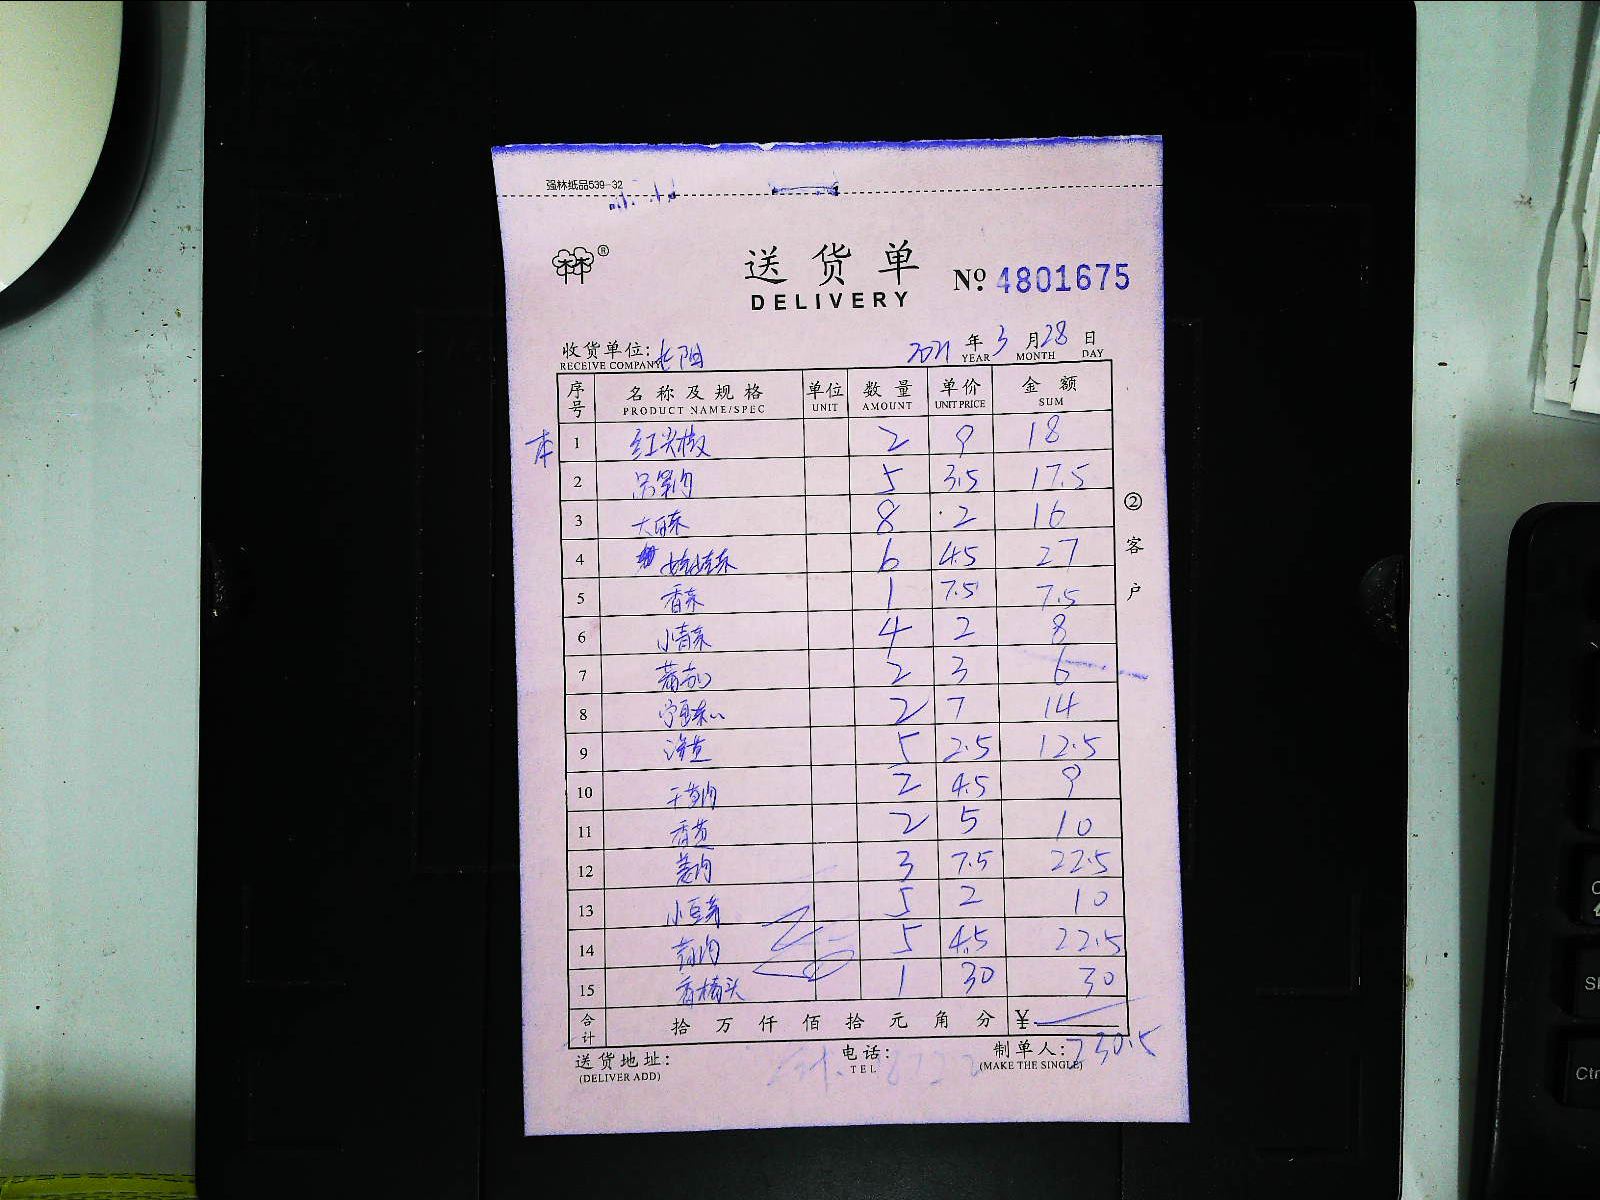 强林纸品539-32
林®
送货单
DELIVERY
No. 4801675
收货单位: 长阳
RECEIVE COMPANY
2021 年 3 月 28 日
YEAR MONTH DAY
序号 名称及规格 单位 数量 单价 金额
PRODUCT NAME/SPEC UNIT AMOUNT UNIT PRICE SUM
本
1 红尖椒 2 9 18
2 5 3.5 17.5
3 大白菜 8 2 16
4 娃娃菜 6 4.5 27
5 香菜 1 7.5 7.5
6 小青菜 4 2 8
7 2 3 6
8 2 7 14
9 5 2.5 12.5
10 2 4.5 9
11 2 5 10
12 3 7.5 22.5
13 小豆芽 5 2 10
14 5 4.5 22.5
15 1 30 30
合计 拾 万 仟 佰 拾 元 角 分 ¥
230.5
②客户
送货地址: 电话: 制单人:
(DELIVER ADD) TEL (MAKE THE SINGLE)